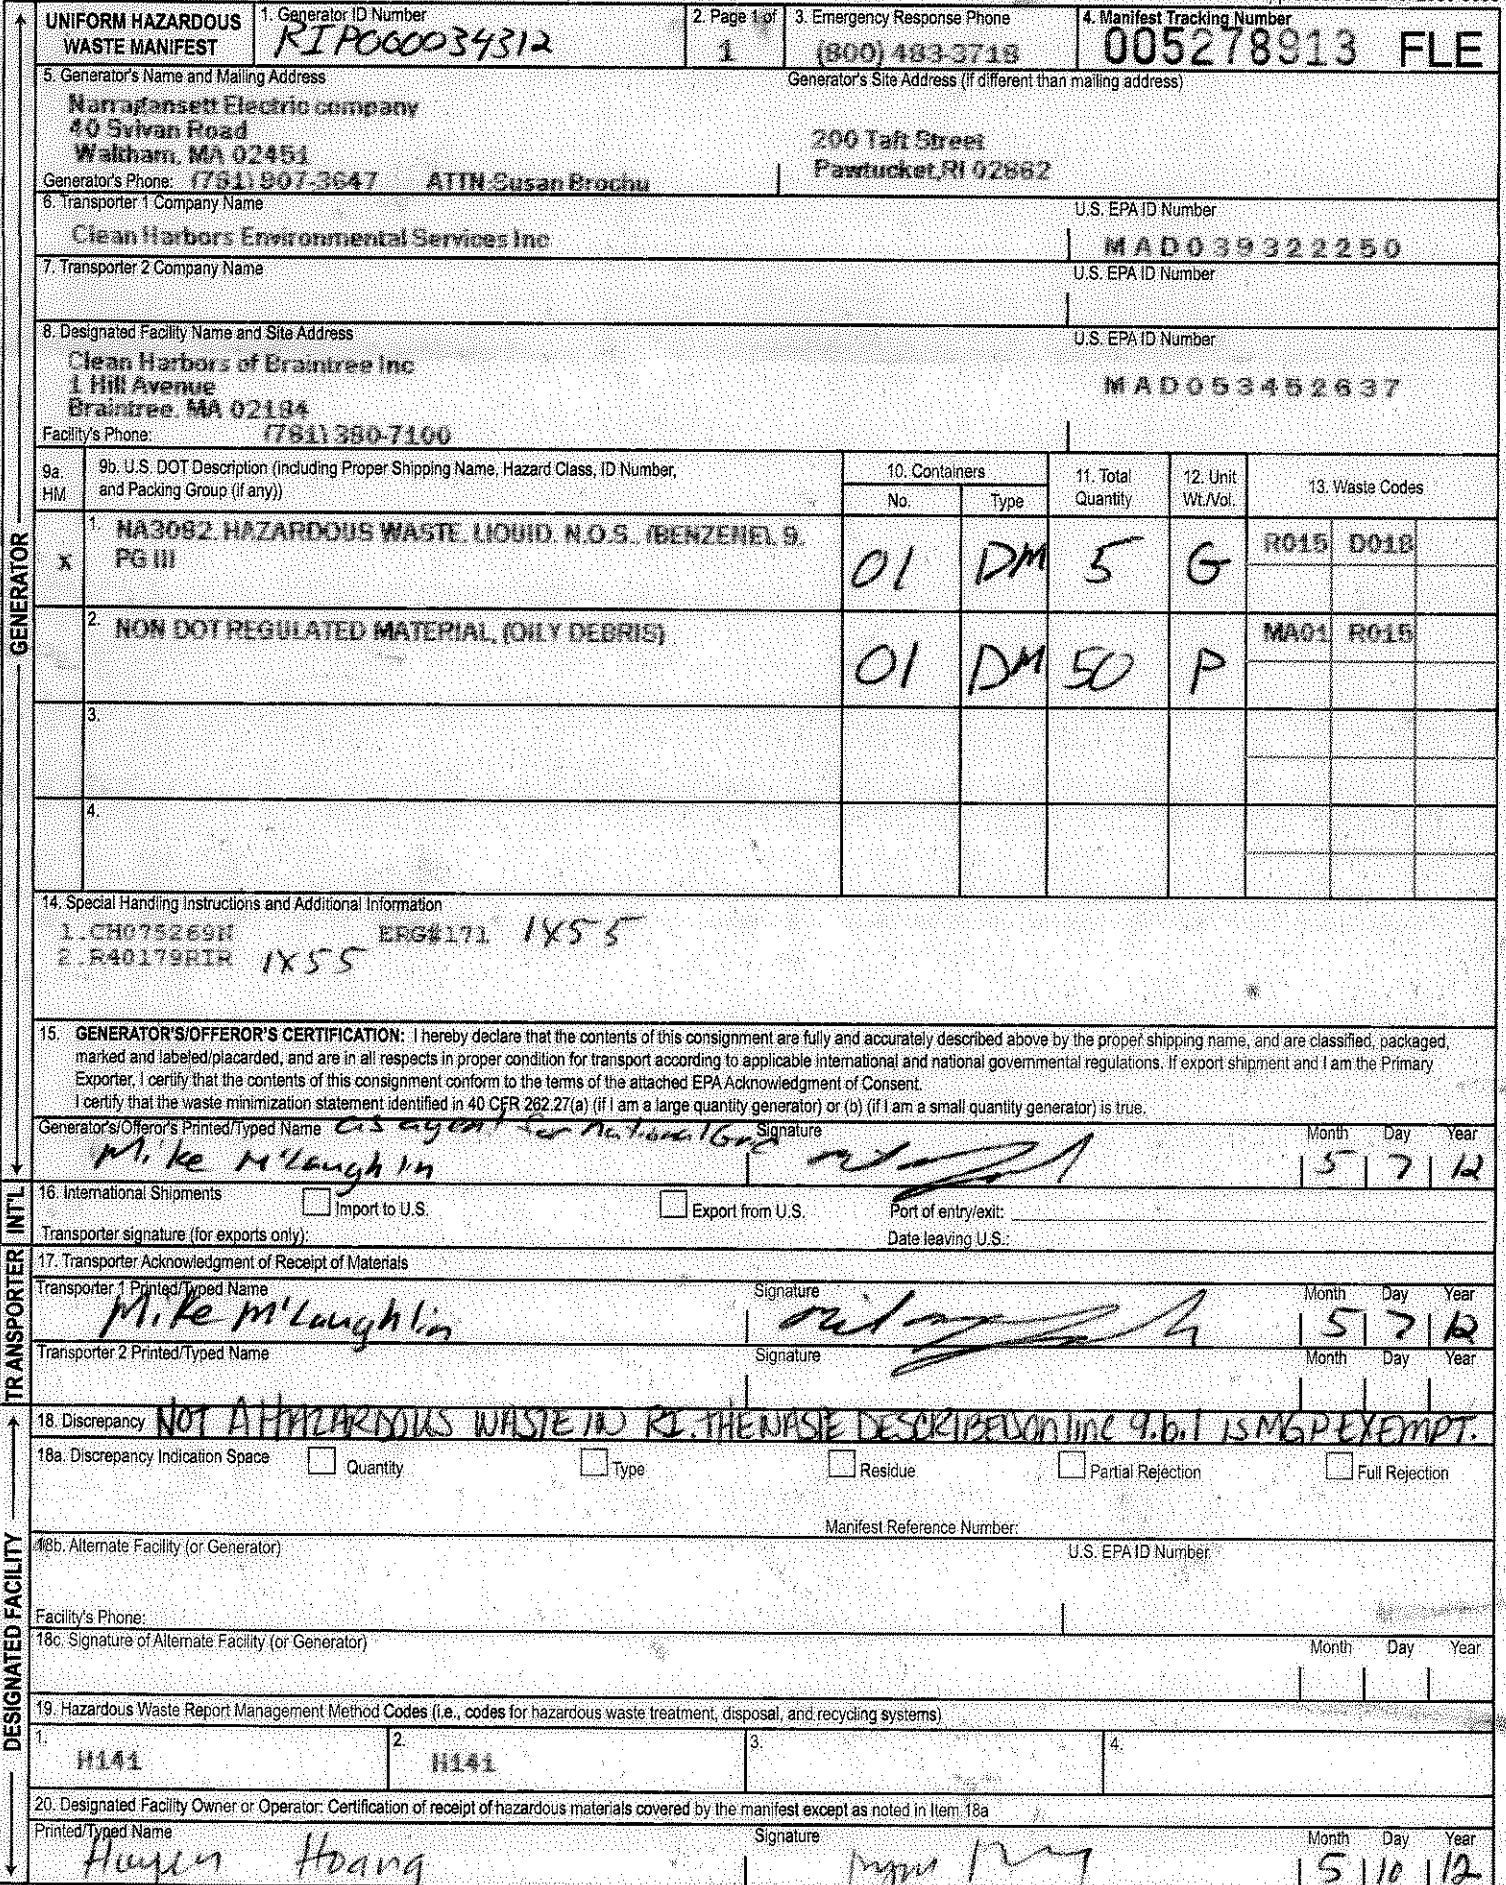 UNIFORM HAZARDOUS WASTE MANIFEST
1. Generator ID Number
RIP000034312
2. Page 1 of
1
3. Emergency Response Phone
(800) 483-3718
4. Manifest Tracking Number
005278913 FLE
5. Generator's Name and Mailing Address
Generator's Site Address (if different than mailing address)
Narragansett Electric company
40 Sylvan Road
Waltham, MA 02451
200 Taft Street
Pawtucket,RI 02862
Generator's Phone: (781) 907-3647 ATTN:Susan Brochu
6. Transporter 1 Company Name
U.S. EPA ID Number
Clean Harbors Environmental Services Inc
MAD039322250
7. Transporter 2 Company Name
U.S. EPA ID Number
8. Designated Facility Name and Site Address
U.S. EPA ID Number
Clean Harbors of Braintree Inc
1 Hill Avenue
Braintree, MA 02184
MAD053452637
Facility's Phone: (781) 380-7100
9a. HM
9b. U.S. DOT Description (including Proper Shipping Name, Hazard Class, ID Number, and Packing Group (if any))
10. Containers
No.
Type
11. Total Quantity
12. Unit Wt./Vol.
13. Waste Codes
GENERATOR
X
1. NA3082, HAZARDOUS WASTE, LIQUID, N.O.S., (BENZENE), 9,
PG III
01 DM 5 G
R015 D018
2. NON DOT REGULATED MATERIAL, (OILY DEBRIS)
01 DM 50 P
MA01 R015
3.
4.
14. Special Handling Instructions and Additional Information
1.CH075269N ERG#171 1X55
2.R40179RIR 1X55
15. GENERATOR'S/OFFEROR'S CERTIFICATION: I hereby declare that the contents of this consignment are fully and accurately described above by the proper shipping name, and are classified, packaged,
marked and labeled/placarded, and are in all respects in proper condition for transport according to applicable international and national governmental regulations. If export shipment and I am the Primary
Exporter, I certify that the contents of this consignment conform to the terms of the attached EPA Acknowledgment of Consent.
I certify that the waste minimization statement identified in 40 CFR 262.27(a) (if I am a large quantity generator) or (b) (if I am a small quantity generator) is true.
Generator's/Offeror's Printed/Typed Name as agent for National Grid
Signature
Month Day Year
Mike M'Laughlin
5 7 12
INT'L
16. International Shipments
Import to U.S.
Export from U.S.
Port of entry/exit:
Transporter signature (for exports only):
Date leaving U.S.:
TRANSPORTER
17. Transporter Acknowledgment of Receipt of Materials
Transporter 1 Printed/Typed Name
Signature
Month Day Year
Mike M'Laughlin
5 7 12
Transporter 2 Printed/Typed Name
Signature
Month Day Year
DESIGNATED FACILITY
18. Discrepancy NOT A HAZARDOUS WASTE IN RI. THE WASTE DESCRIBED on line 9.b.1 IS MGP EXEMPT.
18a. Discrepancy Indication Space
Quantity
Type
Residue
Partial Rejection
Full Rejection
Manifest Reference Number:
18b. Alternate Facility (or Generator)
U.S. EPA ID Number
Facility's Phone:
18c. Signature of Alternate Facility (or Generator)
Month Day Year
19. Hazardous Waste Report Management Method Codes (i.e., codes for hazardous waste treatment, disposal, and recycling systems)
1. H141
2. H141
3.
4.
20. Designated Facility Owner or Operator: Certification of receipt of hazardous materials covered by the manifest except as noted in Item 18a
Printed/Typed Name
Signature
Month Day Year
Huyen Hoang
5 10 12